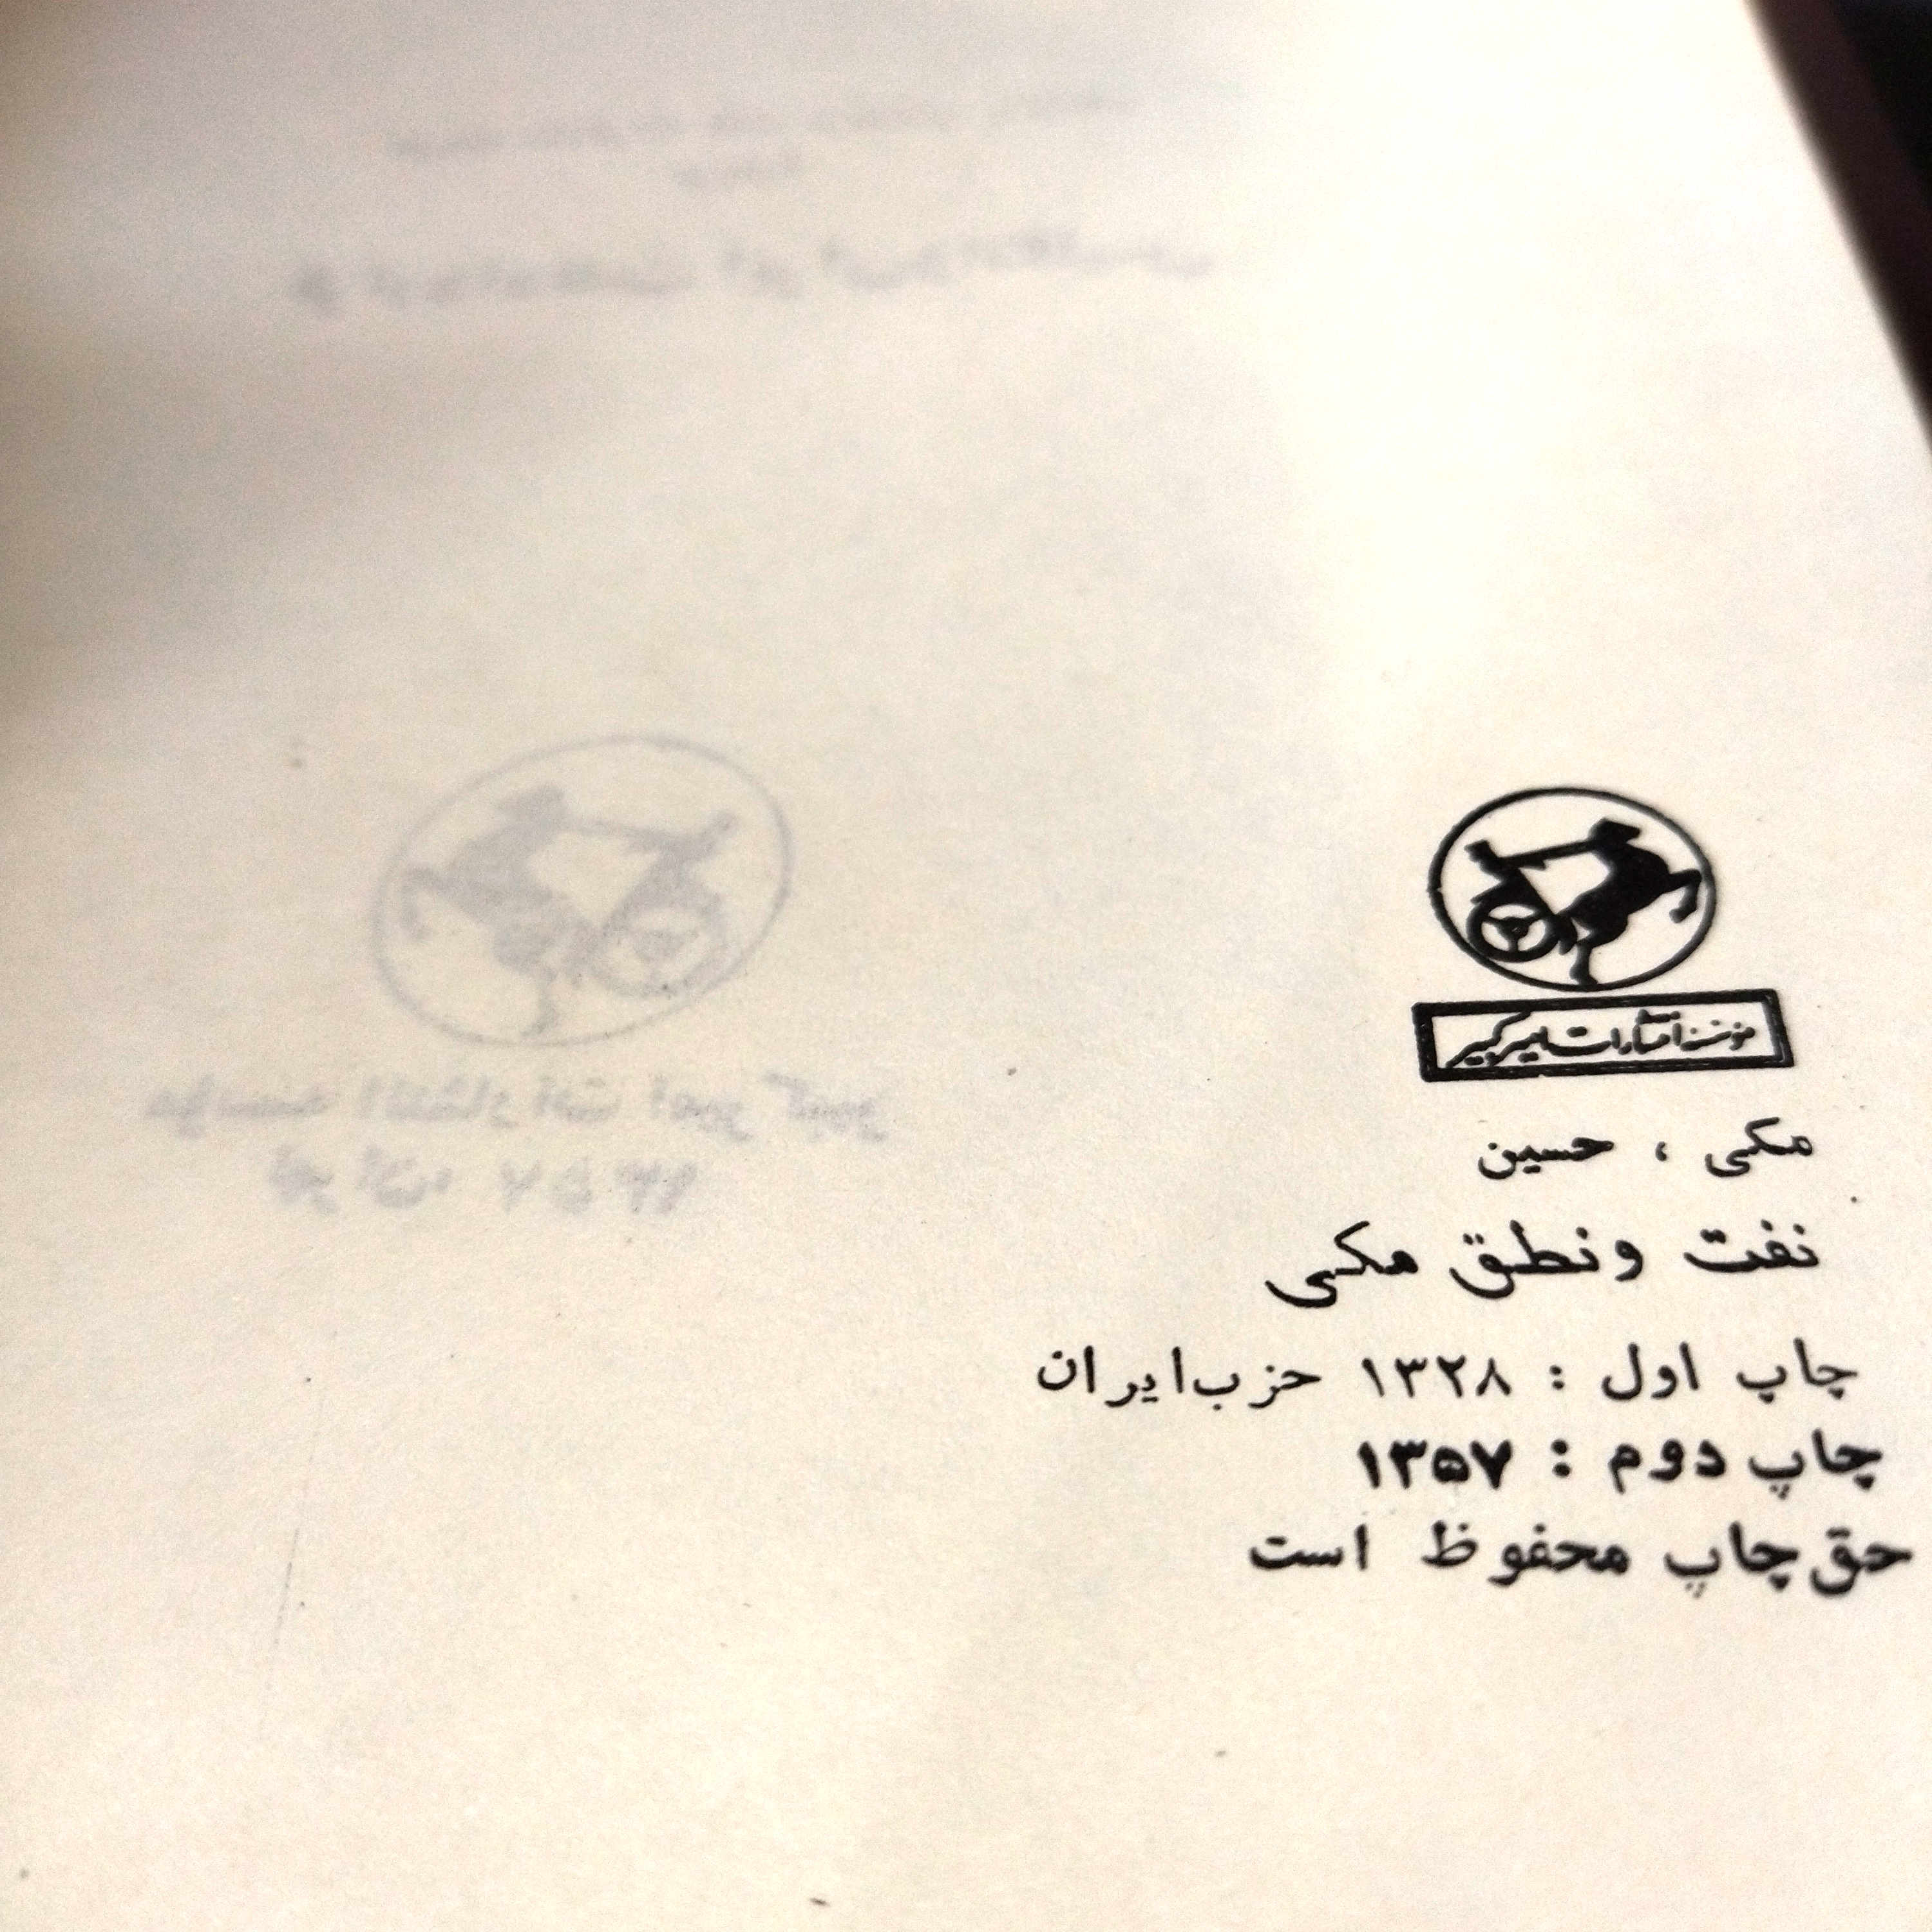 مؤسسه انتشارات امیرکبیر
مکی ، حسین
نفت و نطق مکی
چاپ اول : ۱۳۲۸ حزب ایران
چاپ دوم : ۱۳۵۷
حق چاپ محفوظ است